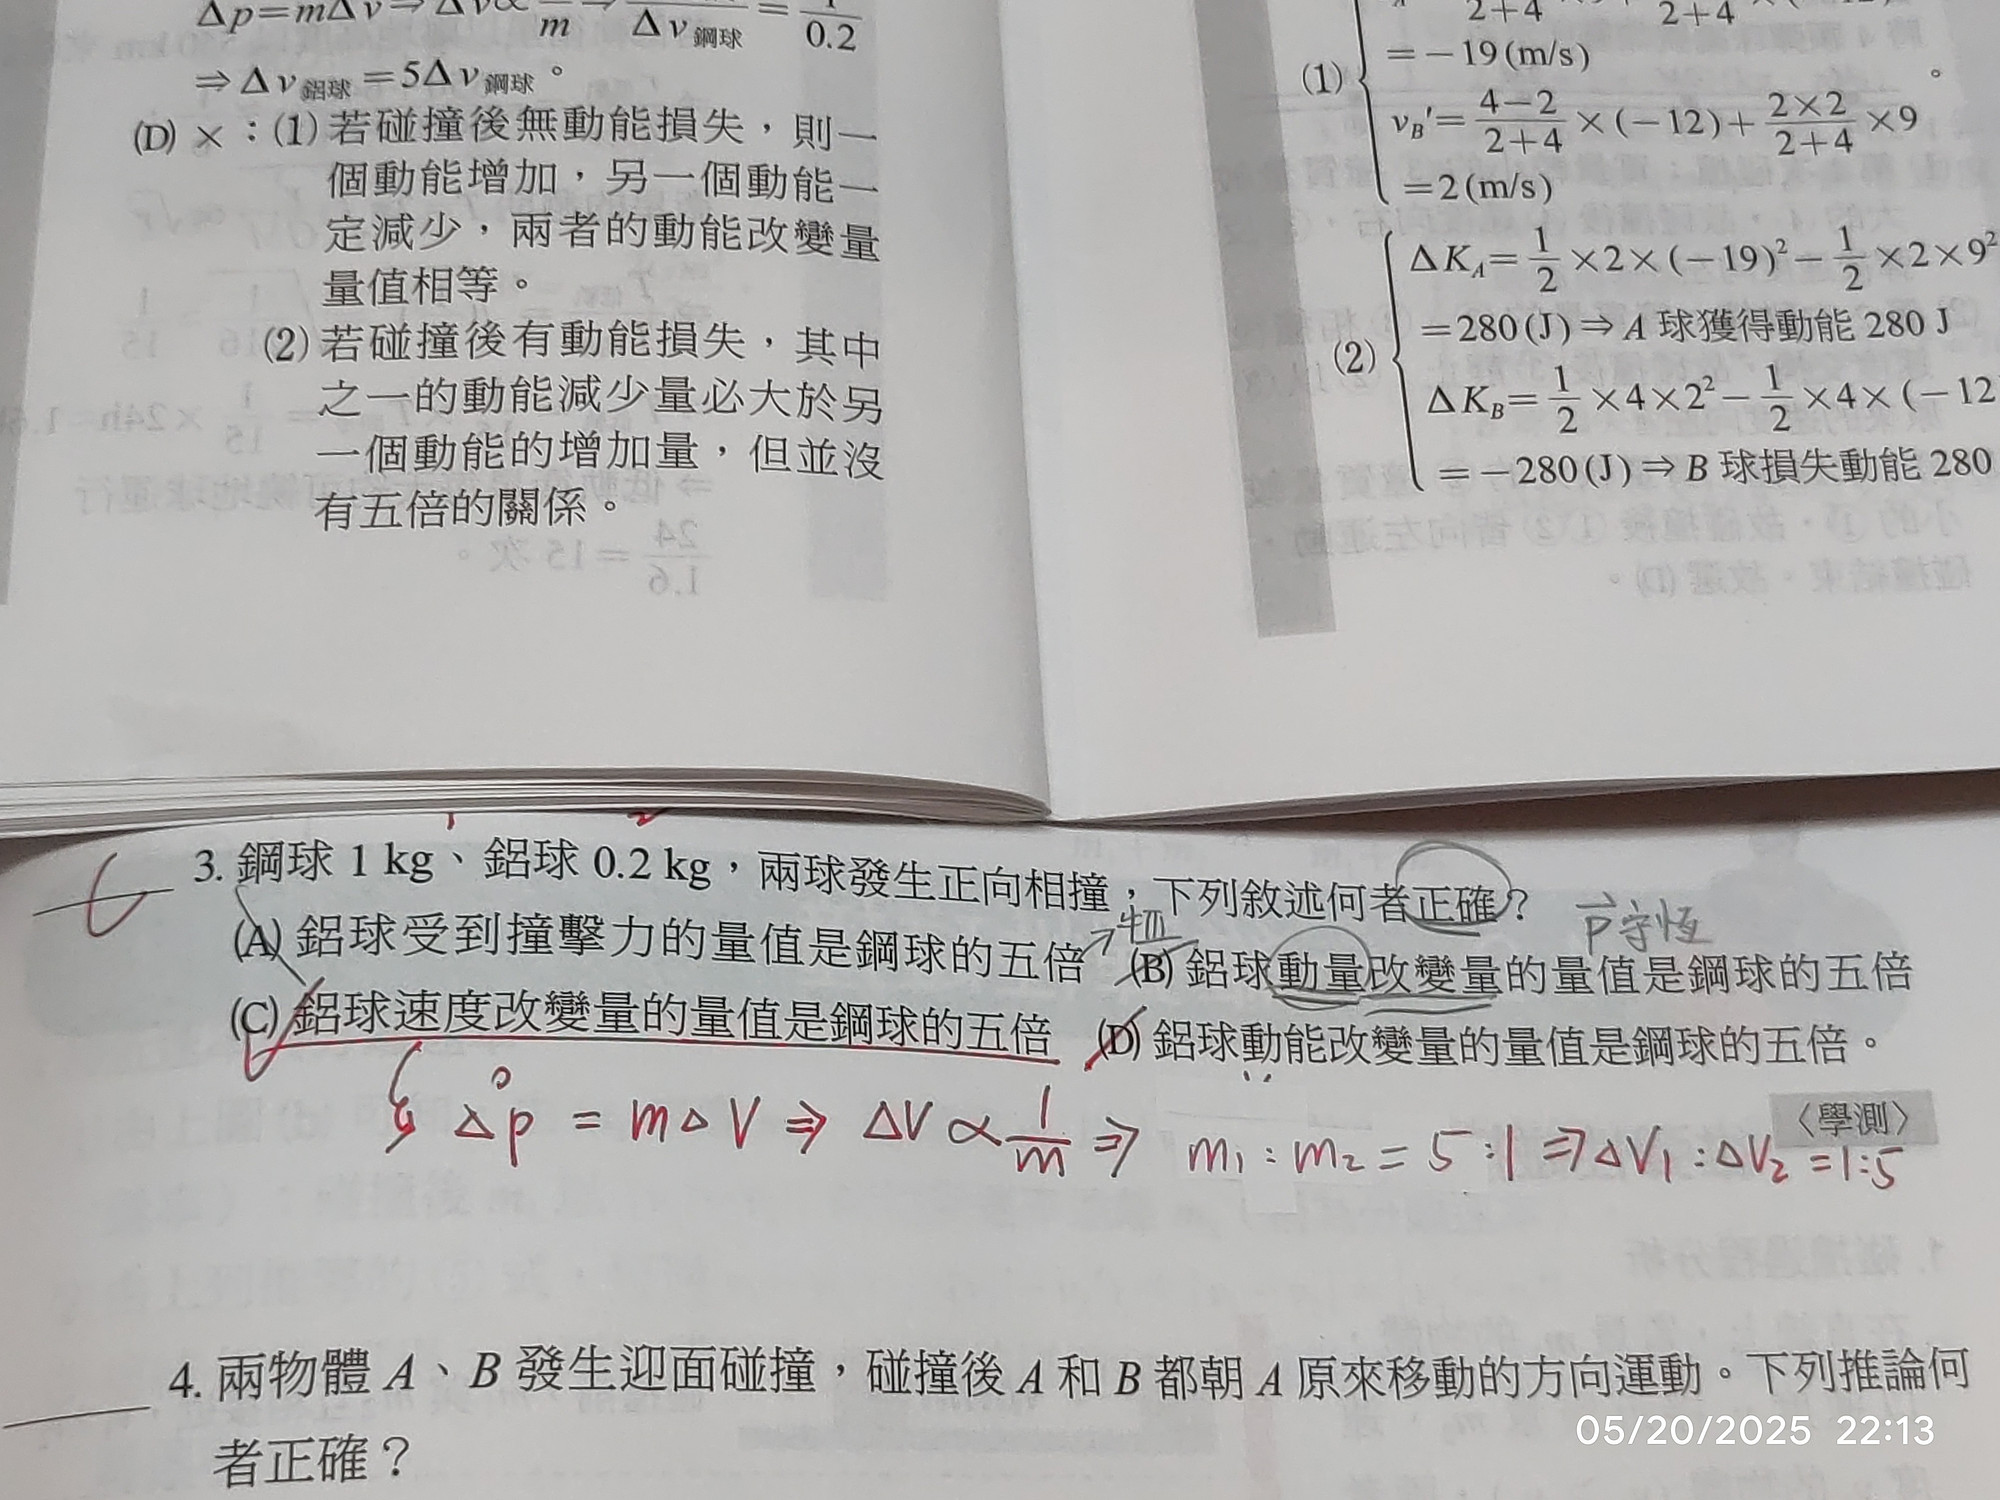 Δp=mΔv⇒Δv∝ /m ⇒ /Δv鋼球 = 1/0.2
⇒Δv鋁球=5Δv鋼球。
(D) ×:(1)若碰撞後無動能損失,則一
個動能增加,另一個動能一
定減少,兩者的動能改變量
量值相等。
(2)若碰撞後有動能損失,其中
之一的動能減少量必大於另
一個動能的增加量,但並沒
有五倍的關係。
2+4 2+4
(1) =-19(m/s) 。
vB'=4-2/2+4×(-12)+2×2/2+4×9
=2(m/s)
ΔKA=1/2×2×(-19)²-1/2×2×9²
(2) =280(J)⇒A 球獲得動能 280 J
ΔKB=1/2×4×2²-1/2×4×(-12
=-280(J)⇒B 球損失動能 280
C 3. 鋼球 1 kg、鋁球 0.2 kg,兩球發生正向相撞,下列敘述何者正確?
牛Ⅲ p守恆
(A) 鋁球受到撞擊力的量值是鋼球的五倍 (B) 鋁球動量改變量的量值是鋼球的五倍
(C) 鋁球速度改變量的量值是鋼球的五倍 (D) 鋁球動能改變量的量值是鋼球的五倍。
〈學測〉
Δp = mΔV ⇒ ΔV ∝ 1/m ⇒ m1:m2=5:1⇒ΔV1:ΔV2=1:5
4. 兩物體 A、B 發生迎面碰撞,碰撞後 A 和 B 都朝 A 原來移動的方向運動。下列推論何
者正確?
05/20/2025 22:13